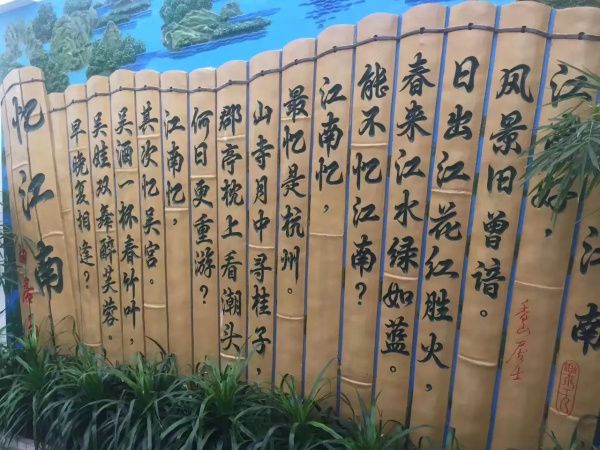 江南
江好，
风景旧曾谙。
香山居士
日出江花红胜火，
春来江水绿如蓝。
能不忆江南？
江南忆，
最忆是杭州。
山寺月中寻桂子，
郡亭枕上看潮头
何日更重游？
江南忆，
其次忆吴宫。
吴酒一杯春竹叶，
吴娃双舞醉芙蓉。
早晚复相逢？
忆江南